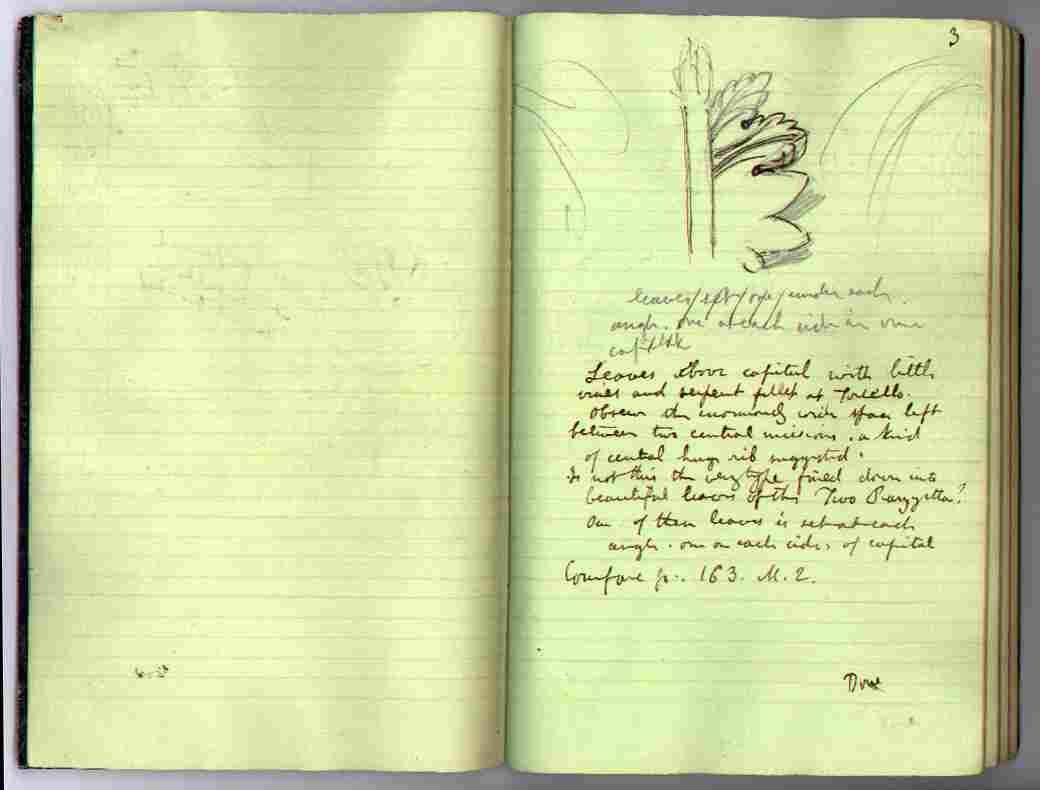 3
leaves left one under each
angle. one at each side in vine
capital
Leaves above capital with little
vines and serpent fillet at Torcello.
Observe the enormously wide space left
between two central incisions. a kind
of central huge rib suggested.
Is not this the very type fined down into
beautiful leaves of the Two Piazzetta?
One of these leaves is set at each
angle. one on each side, of capital
Compare p. 163. M.2.
Done